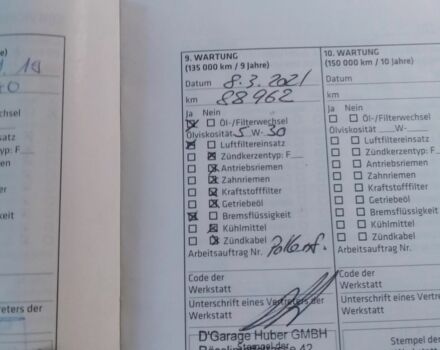 9. WARTUNG
(135 000 km / 9 Jahre)
Datum 8.3.2021
km 88962
Ja Nein
Öl-/Filterwechsel
Ölviskosität 5 W- 30
Luftfiltereinsatz
Zündkerzentyp: F
Antriebsriemen
Zahnriemen
Kraftstofffilter
Getriebeöl
Bremsflüssigkeit
Kühlmittel
Zündkabel
Arbeitsauftrag Nr.
Code der
Werkstatt
Unterschrift eines Vertreters der
Werkstatt
D'Garage Huber GMBH
Stempel der
42
10. WARTUNG
(150 000 km / 10 Jahre)
Datum
km
Ja Nein
Öl-/Filterwechsel
Ölviskosität W-
Luftfiltereinsatz
Zündkerzentyp: F
Antriebsriemen
Zahnriemen
Kraftstofffilter
Getriebeöl
Bremsflüssigkeit
Kühlmittel
Zündkabel
Arbeitsauftrag Nr.
Code der
Werkstatt
Unterschrift eines Ver
Werkstatt
Stempel de